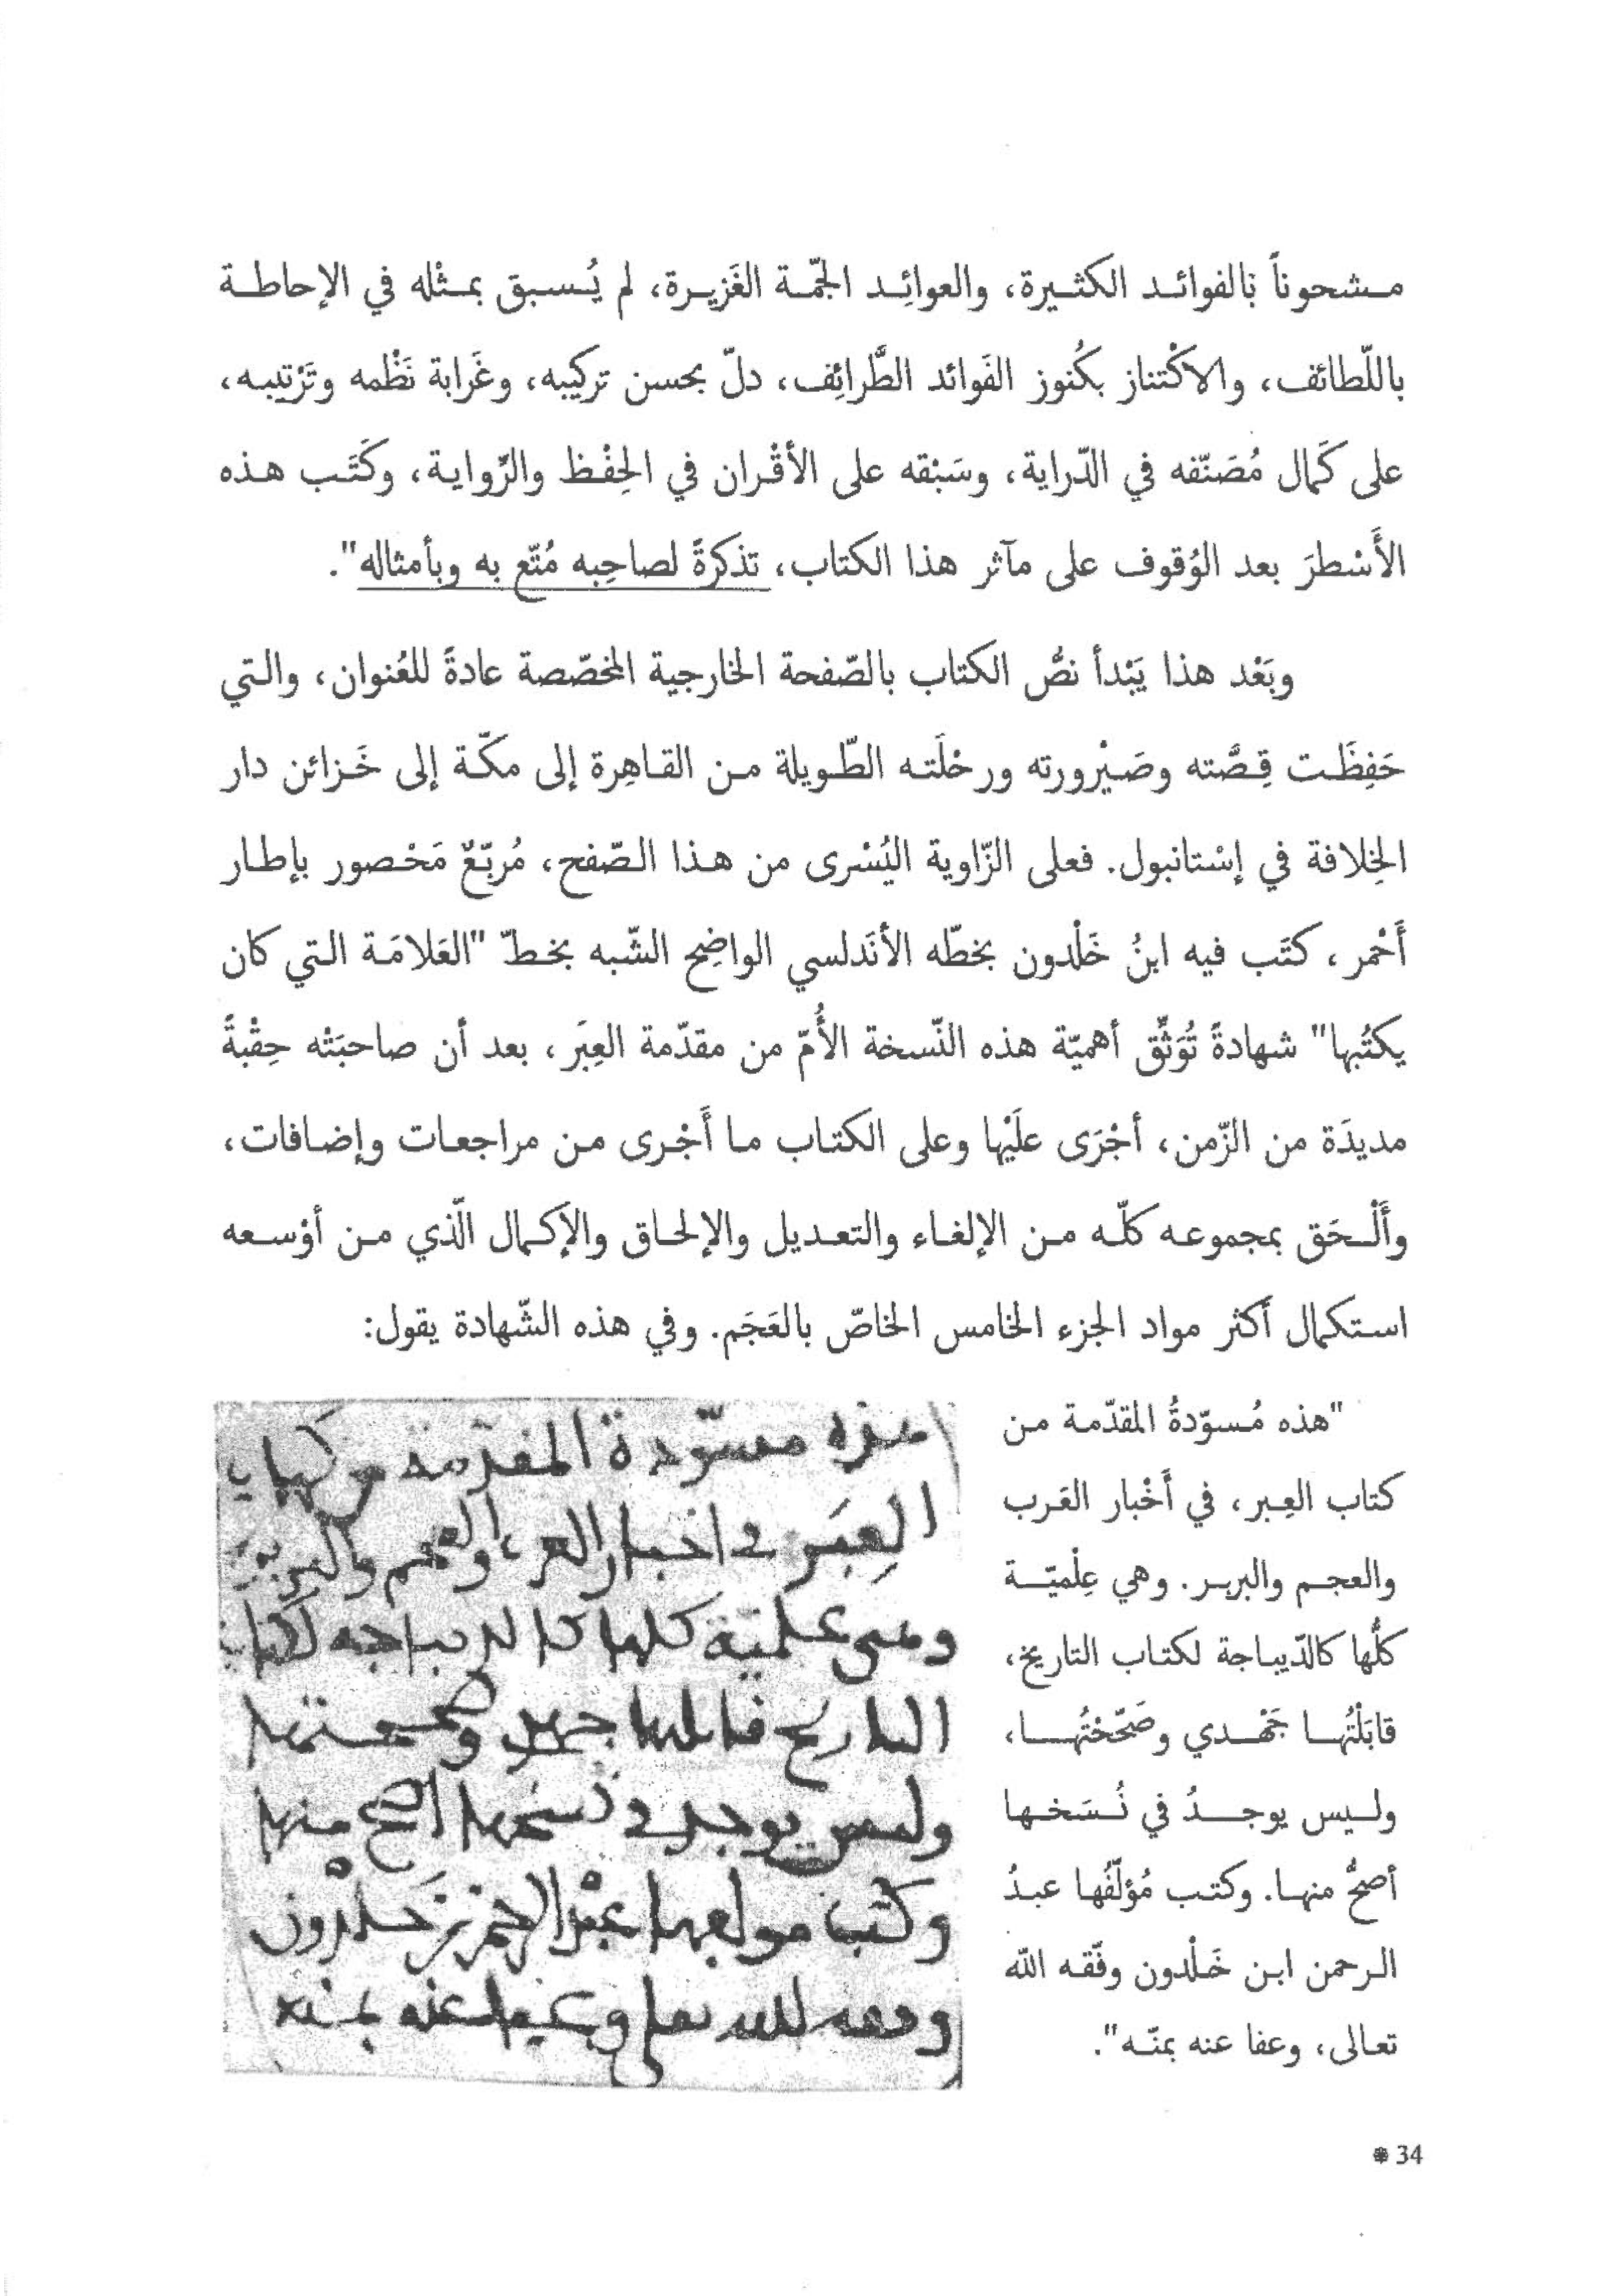 مشحوناً بالفوائد الكثيرة، والعوائِد الجّمة الغَزيرة، لم يُسبق بمثْله في الإحاطة
باللّطائف، والاكْتناز بكُنوز الفَوائد الطَّرائِف، دلّ بحسن تركيبه، وغَرابة نَظْمه وتَرْتيبه،
على كَمال مُصَنّفه في الدّراية، وسَبْقه على الأقْران في الحِفْظ والرّواية، وكَتَب هذه
الأَسْطرَ بعد الوُقوف على مآثر هذا الكتاب، تذكرةً لصاحِبه مُتّع به وبأمثاله".
وبَعْد هذا يَبْدأ نصُّ الكتاب بالصّفحة الخارجية المخصّصة عادةً للعُنوان، والتي
حَفِظَت قِصَّته وصَيْرورته ورحْلَته الطّويلة من القاهِرة إلى مكّة إلى خَزائن دار
الخِلافة في إسْتانبول. فعلى الزّاوية اليُسْرى من هذا الصّفح، مُربّعٌ مَحْصور بإطار
أَحْمر، كتَب فيه ابنُ خَلْدون بخطّه الأنَدلسي الواضِح الشّبه بخطّ "العَلامَة التي كان
يكتُبها" شهادةً تُوَثِّق أهميّة هذه النّسخة الأُمّ من مقدّمة العِبَر، بعد أن صاحبَتْه حِقْبةً
مديدَة من الزّمن، أجْرَى علَيْها وعلى الكتاب ما أَجْرى من مراجعات وإضافات،
وأَلْحَق بمجموعه كلّه من الإلغاء والتعديل والإلحاق والإكمال الّذي من أوْسعه
استكمال أكثر مواد الجزء الخامس الخاصّ بالعَجَم. وفي هذه الشّهادة يقول:
"هذه مُسوّدةُ المقدّمة من
كتاب العِبر، في أَخْبار العَرب
والعجم والبربر. وهي عِلْميّة
كلُّها كالدّيباجة لكتاب التاريخ،
قابَلْتُها جَهْدي وصَحّحْتُها،
وليس يوجدُ في نُسَخها
أصحُّ منها. وكتب مُؤلّفُها عبدُ
الرحمن ابن خَلْدون وفّقه الله
تعالى، وعفا عنه بمنّه".
هذه مسوّدة المقدّمة من كتاب
العِبَر في اخبار العرب والعجم والبربر
وهي علميّة كلها كالديباجة لكتاب
التاريخ قابلتها جهدي وصححتها
وليس يوجد في نسخها اصح منها
وكتب مولفها عبد الرحمن بن خلدون
وفقه الله تعلى وعفا عنه بمنه
34 ❋